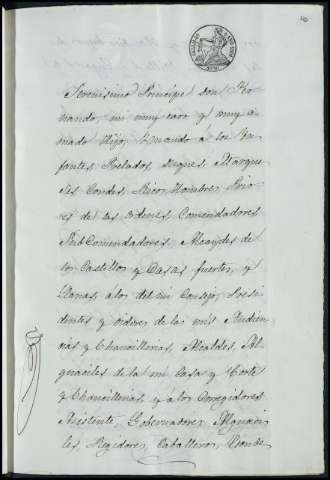 Serenisimo Principe don Fer
nando, mi muy caro y muy a
mado Hijo, y mando á los In
fantes, Prelados, Duques, Marque
ses Condes, Ricos Hombres, Prio
res de las ordenes, Comendadores
SubComendadores, Alcaydes de
los Castillos y Casas fuertes, y
llanas, á los del mi Consejo, Presi
dentes y oidores de las mis Audien
cias y Chancillerias, Alcaldes, Al
guaciles de la mi Casa y Corte
y Chancillerias, y á los Corregidores
Asistente, Gobernadores Alguaci
les, Regidores, Caballeros, Escude